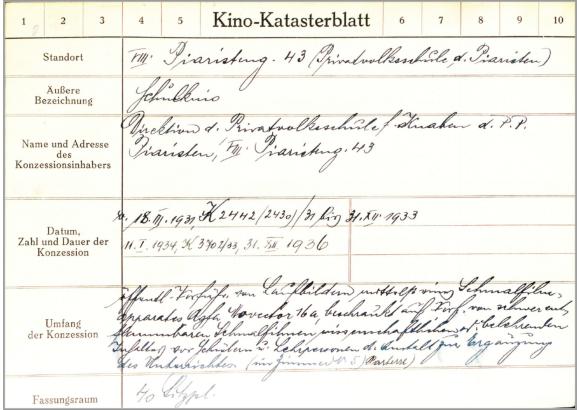 1 2 3 4 5 Kino-Katasterblatt 6 7 8 9 10
Standort
VIII. Piaristeng. 43 (Privatvolksschule d. Piaristen)
Äußere Bezeichnung
Schulkino
Name und Adresse des Konzessionsinhabers
Direktion d. Privatvolksschule f. Knaben d. P.P.
Piaristen, VIII. Piaristeng. 43
Datum, Zahl und Dauer der Konzession
18. III. 1931, K 2442/2430/31 bis 31. XII. 1933
11. I. 1934, K 3702/33, 31. XII 1936
Umfang der Konzession
öffentl. Vorführ. von Laufbildern mittelst eines Schmalfilm-
apparates Agfa Movector 16a, beschränkt auf Vorf. von schwer ent-
flammbaren Schmalfilmen wissenschaftlichen od. belehrenden
Inhaltes vor Schülern u. Lehrpersonen d. Anstalt zur Ergänzung
des Unterrichtes (im Zimmer Nr. 5) Parterre)
Fassungsraum
40 Sitzpl.